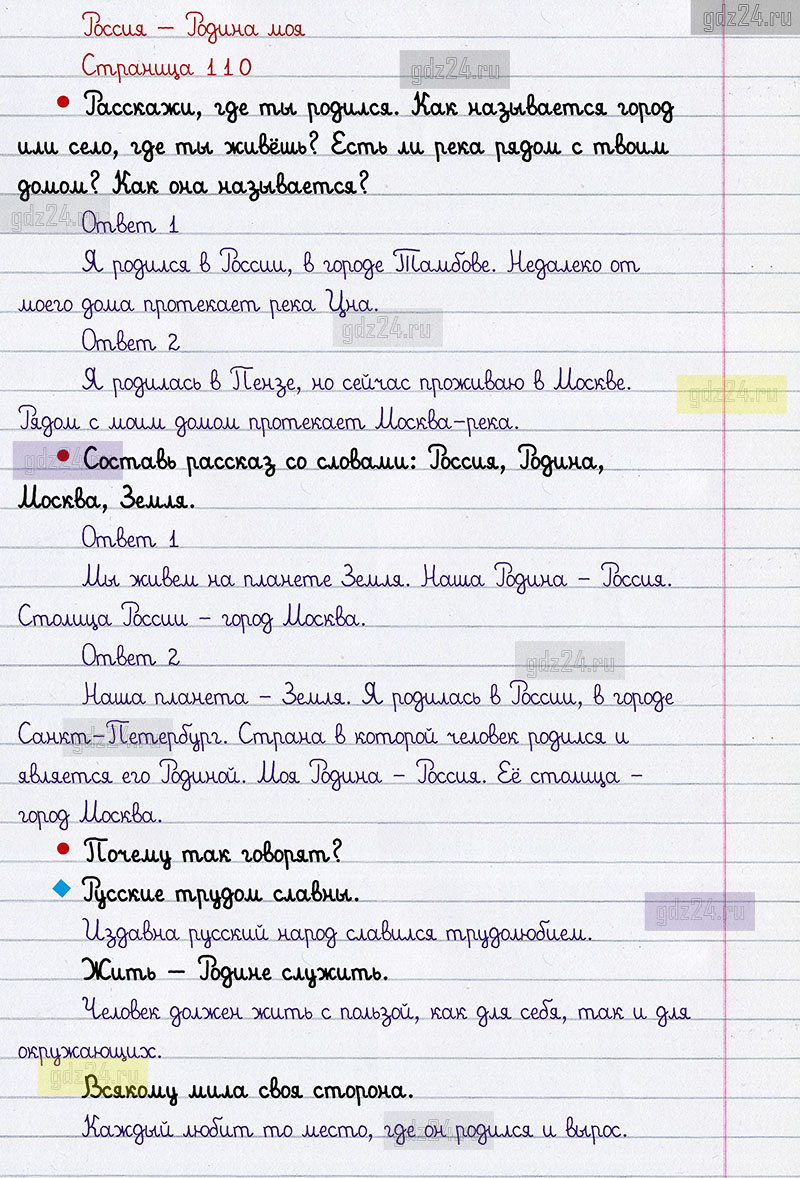 gdz24.ru
Россия – Родина моя
Страница 110
gdz24.ru
Расскажи, где ты родился. Как называется город
или село, где ты живёшь? Есть ли река рядом с твоим
домом? Как она называется?
gdz24.ru
Ответ 1
Я родился в России, в городе Тамбове. Недалеко от
моего дома протекает река Цна.
gdz24.ru
Ответ 2
Я родилась в Пензе, но сейчас проживаю в Москве.
gdz24.ru
Рядом с моим домом протекает Москва-река.
gdz24.ru
Составь рассказ со словами: Россия, Родина,
Москва, Земля.
Ответ 1
Мы живем на планете Земля. Наша Родина – Россия.
Столица России – город Москва.
Ответ 2
gdz24.ru
Наша планета – Земля. Я родилась в России, в городе
Санкт-Петербург. Страна в которой человек родился и
gdz24.ru
является его Родиной. Моя Родина – Россия. Её столица –
город Москва.
Почему так говорят?
Русские трудом славны.
gdz24.ru
Издавна русский народ славился трудолюбием.
Жить – Родине служить.
Человек должен жить с пользой, как для себя, так и для
окружающих.
gdz24.ru
Всякому мила своя сторона.
Каждый любит то место, где он родился и вырос.
gdz24.ru